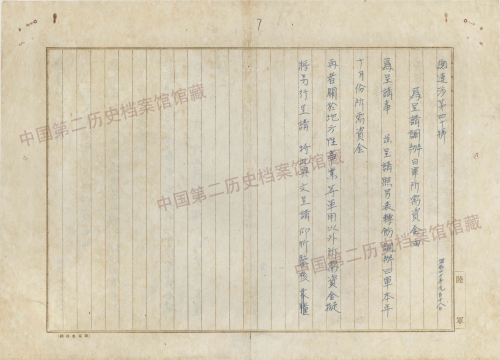 7
為呈請調辦日軍所需資金由
為呈請事 茲呈請照另表轉飭調辦日軍本年
十月份所需資金
再者關於地方性事業年軍用以外所需資金擬
將另行呈請 特此具文呈請仰祈鑒核
中国第二历史档案馆馆藏
中国第二历史档案馆馆藏
中国第二历史档案馆馆藏
陸軍